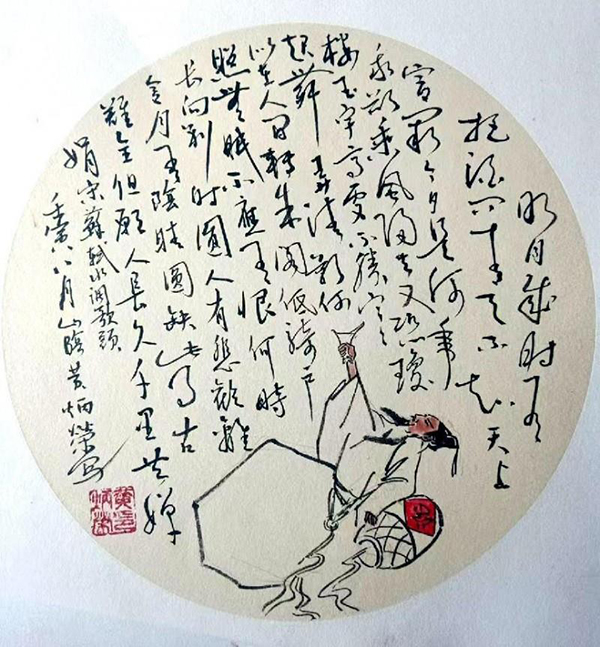 明月幾时有
把酒问青天不知天上
宫阙今夕是何年
我欲乘风归去又恐瓊
楼玉宇高处不胜寒
起舞弄清影何
似在人间转朱阁低绮户
照無眠不應有恨何時
长向别时圓人有悲歡離
合月有陰晴圓缺此事古
難全但愿人長久千里共婵
娟宋蘇轼水调歌頭
八月山陰黄炳榮写